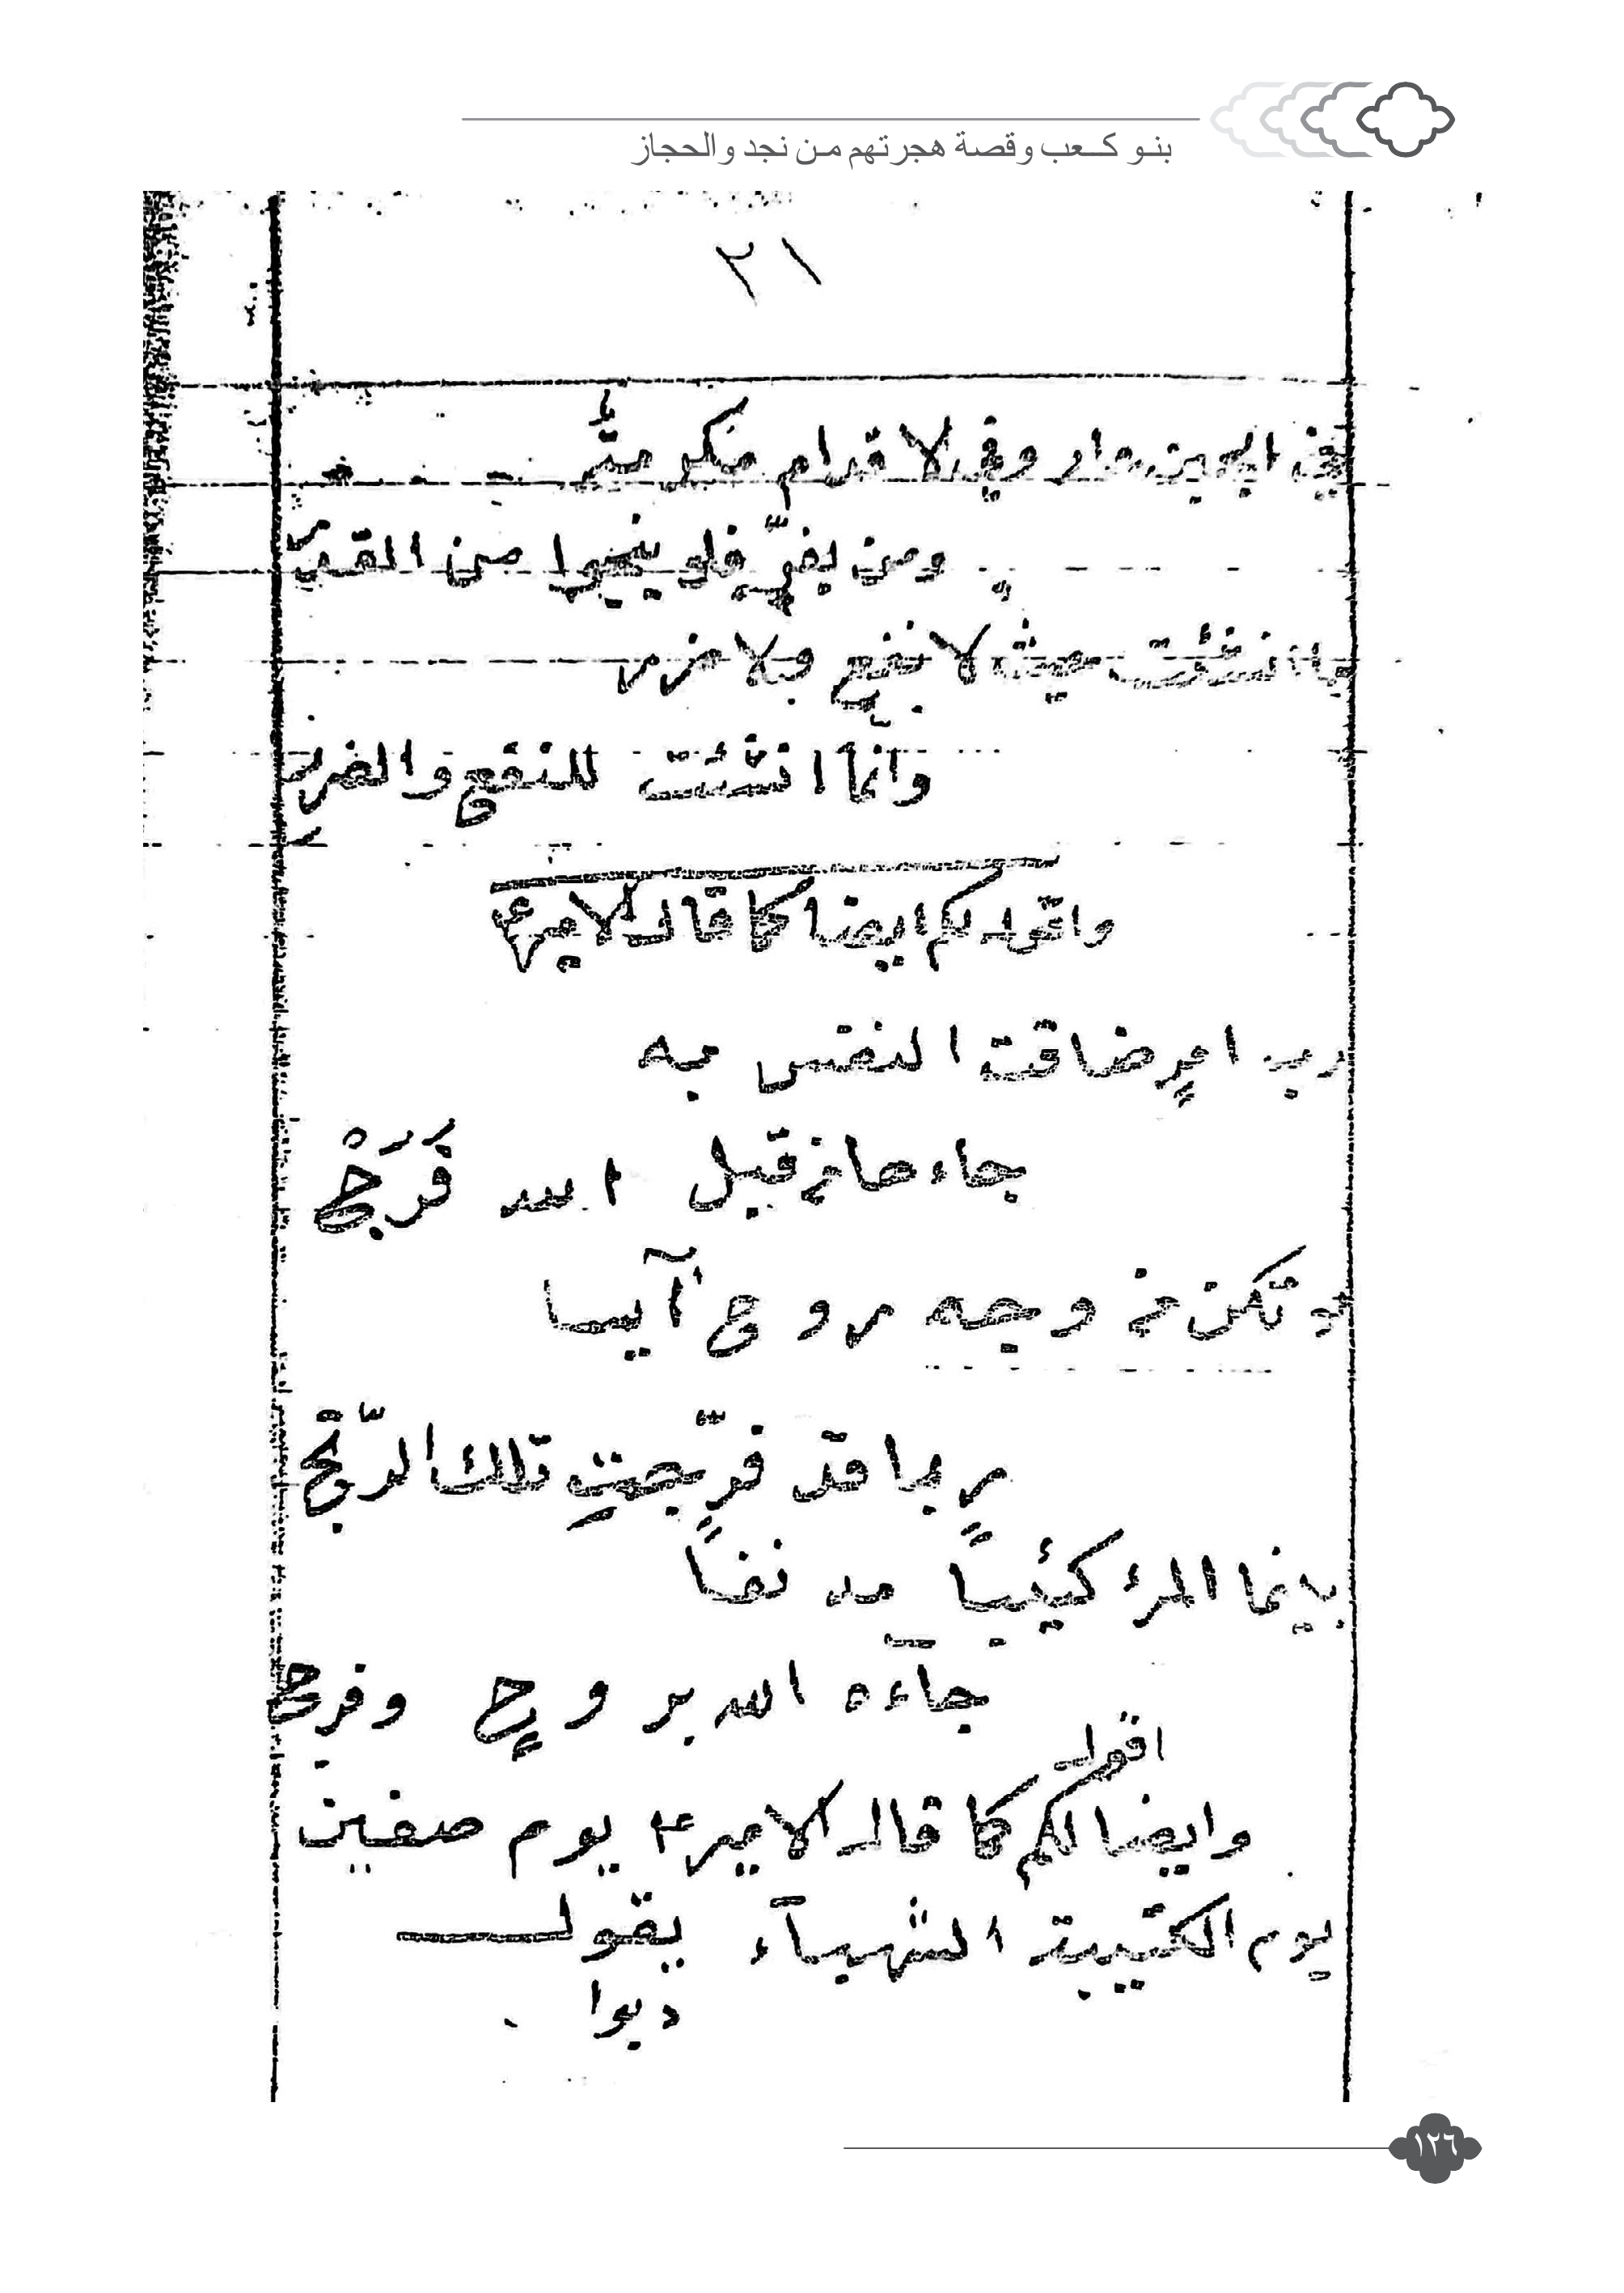 بنو كعب وقصة هجرتهم من نجد والحجاز
٢١
في الجبن عار وفي الاقدام مكرمة
ومن يفرّ فلو ينجوا من القدر
انشئت حيث لا نفع ولا ضرر
وانما انشئت للنفع والضرر
واقول لكم ايضا كما قال الامير ع
رب امرٍ ضاقت النفس به
جاءها من قبل الله فَرَجْ
لا تكن في وجه روح آيسا
ربما قد فرّجت تلك الرّتج
بينما المرء كئيباً مدنفاً
جآءه الله بروحٍ وفرج
اقول
وايضا لكم كما قال الامير ع يوم صفين
يوم الكتيبة الشهبآء يقول
دبوا
١٢٦